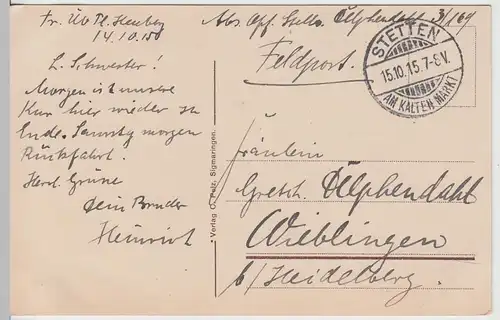 Tr. Üb. Pl. Heuberg
14.10.15
L. Schwester!
Morgen ist unsere
Kur hier wieder zu
Ende. Samstg morgen
Rückfahrt.
Herzl. Grüsse
Dein Bruder
Heinrich
Verlag O. Pelz, Sigmaringen.
Abs. Opf. Stellv. Ölphendahl 3/169
Feldpost.
STETTEN
15.10.15.7-8V.
AM KALTEN MARKT
Fräulein
Gretch. Ölphendahl
Wieblingen
b/Heidelberg.